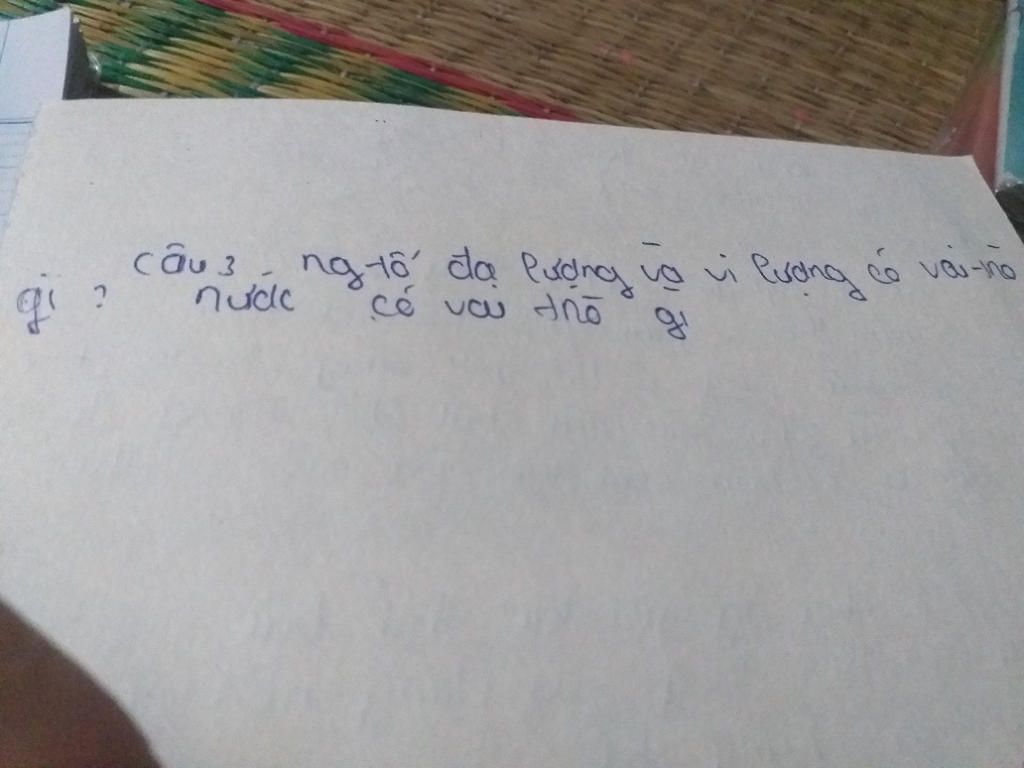 Câu 3 - ng-tố đa lượng và vi lượng có vai-trò
gì ? nước có vai trò gì